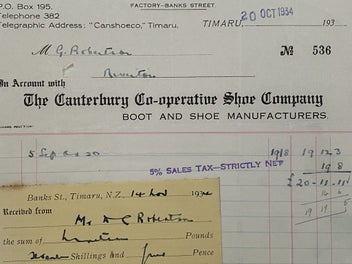 FACTORY-BANKS STREET.
P.O. BOX 195.
Telephone 382
Telegraphic Address: "Canshoeco," Timaru.
TIMARU, 20 OCT 1934 193
M G. Robertson
№ 536
Riverton
In Account with
The Canterbury Co-operative Shoe Company
BOOT AND SHOE MANUFACTURERS.
5 Sep 19 12 3
5% SALES TAX—STRICTLY NET 19 8
£20-11-11
19 19
Banks St., Timaru, N.Z. 14 Nov 193
Received from
Mr Robertson
the sum of Nineteen Pounds
Shillings and five Pence